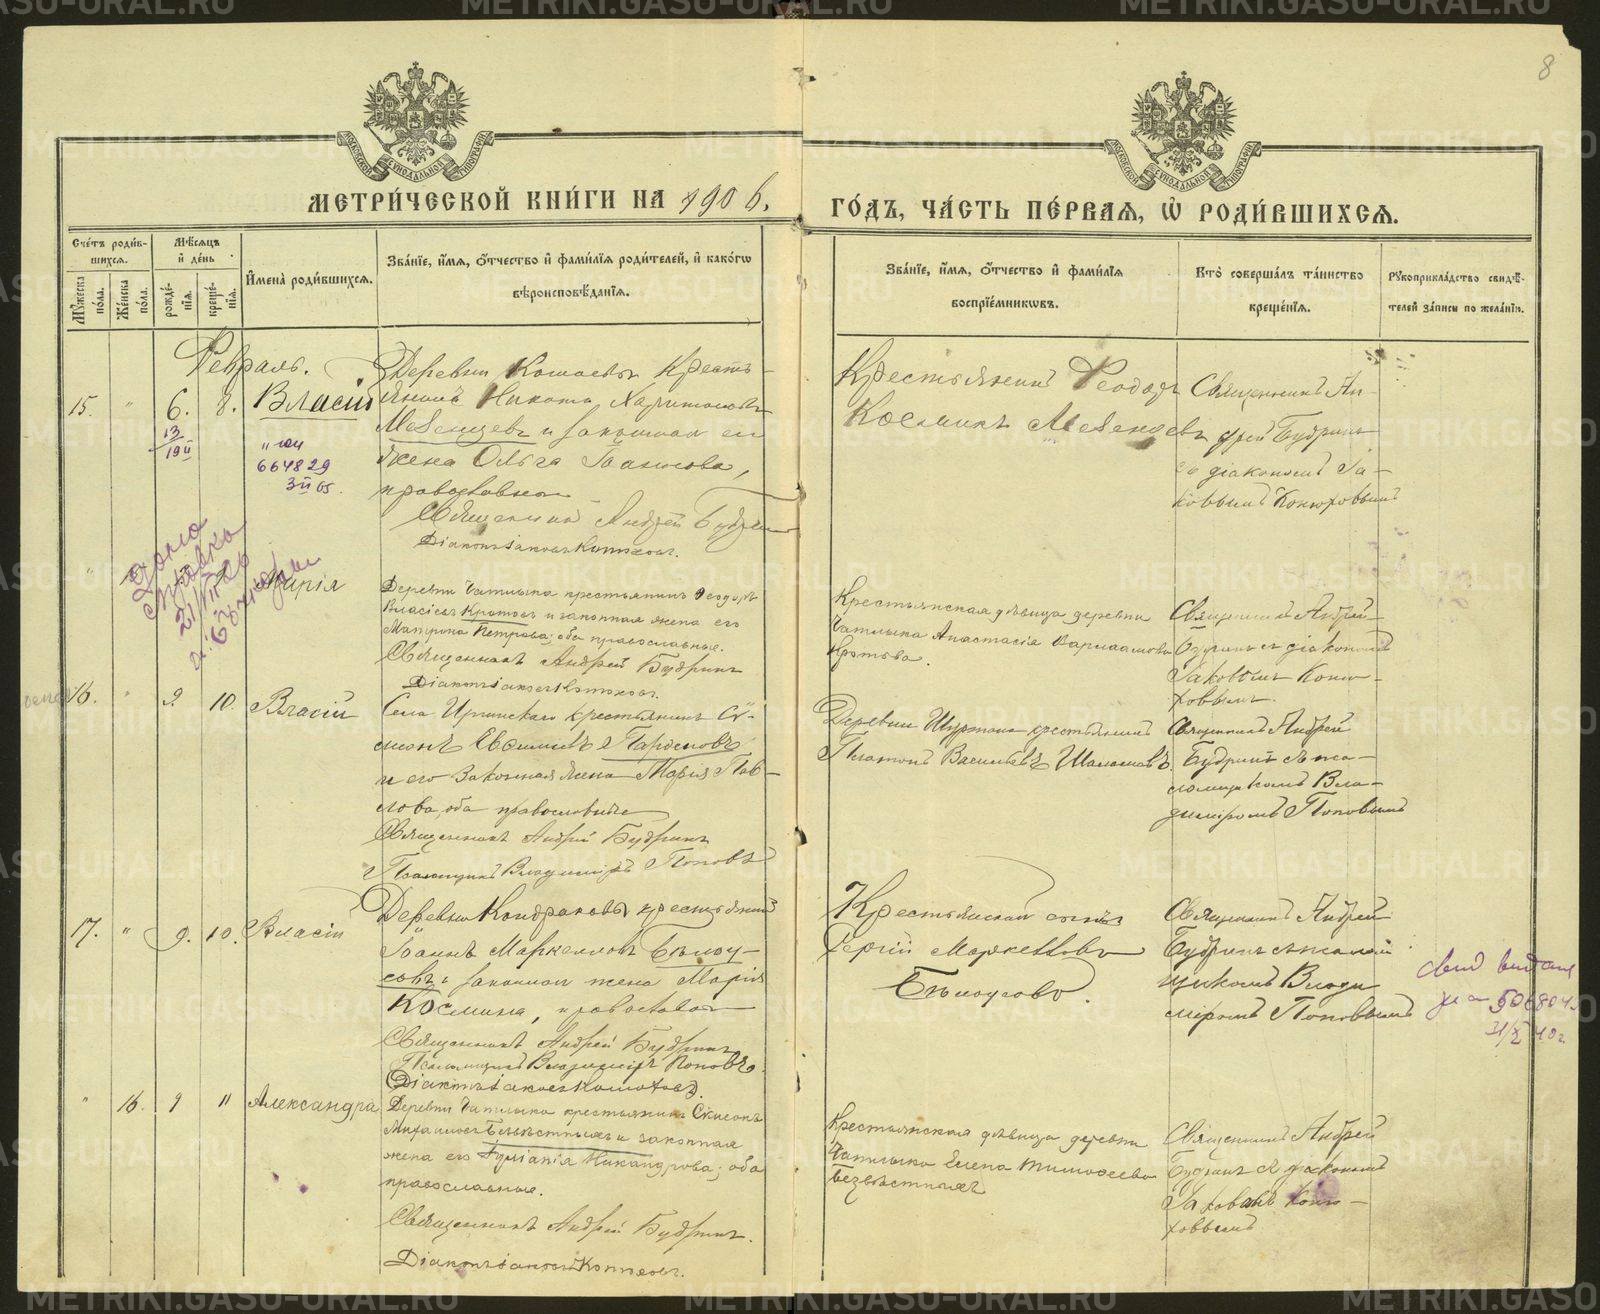 8
МЕТРИ́ЧЕСКОЙ КНИ́ГИ НА 1906.
ГО́ДЪ, ЧА́СТЬ ПЕ́РВАЯ, Ѡ҆ РОДИ́ВШИХСѦ.
Сче́тъ роди́вшихсѧ.
Мꙋ́жеска по́ла.
Же́нска по́ла.
Мѣ́сѧцъ и҆ де́нь
рожде́нїѧ.
креще́нїѧ.
И҆мена̀ роди́вшихсѧ.
Зва́нїе, и҆́мѧ, ѻ҆́тчество и҆ фами́лїѧ роди́телей, и҆ како́гѡ
вѣроисповѣ́данїѧ.
Зва́нїе, и҆́мѧ, ѻ҆́тчество и҆ фами́лїѧ
воспрїе́мникѡвъ.
Кто̀ соверша́лъ та́инство
креще́нїѧ.
Рꙋкоприкла́дство свидѣ́-
телей за́писи по жела́нїю.
Февраль.
15.
"
6.
8.
Власій
664829
Деревни Кошаевы Кресть-
янинъ Никита Харитоновъ
Мезенцевъ и законная его
жена Ольга Іванова,
православные
Священникъ Андрей Будринъ
Діаконъ Іаковъ Конюховъ.
Крестьянинъ Феодоръ
Косминъ Мезенцевъ
Священникъ Ан-
дрей Будринъ
съ діакономъ Іа-
ковымъ Конюховымъ
Марія
Деревни Чатлыка крестьянинъ Феодоръ
Власіевъ Кротовъ и законная жена его
Матрона Петрова; оба православные.
Священникъ Андрей Будринъ
Діаконъ Іаковъ Конюховъ.
Крестьянская дѣвица деревни
Чатлыка Анастасія Варлаамова
Кротова.
Священникъ Андрей
Будринъ съ діакономъ
Іаковомъ Коню-
ховымъ.
16.
"
9.
10.
Власій
Села Иргинскаго крестьянинъ Си-
меонъ Евѳиміевъ Парѳеновъ
и его законная жена Марія Пав-
лова, оба православные
Священникъ Андрей Будринъ
Псаломщикъ Владиміръ Поповъ
Деревни Шуртана крестьянинъ
Платонъ Васильевъ
Священникъ Андрей
Будринъ съ пса-
ломщикомъ Вла-
диміромъ Поповымъ
17.
"
9.
10.
Власій
Деревни Кондраковы крестьянинъ
Іоаннъ Маркелловъ Бѣлоу-
совъ и законная жена Марія
Космина, православные
Священникъ Андрей Будринъ
Псаломщикъ Владиміръ Поповъ
Діаконъ Іаковъ Конюховъ.
Крестьянскій сынъ
Сергій Маркеллово
Бѣлоусово.
Священникъ Андрей
Будринъ съ псалом-
щикомъ Влади-
міромъ Поповымъ
"
16.
9
11
Александра
Деревни Чатлыка крестьянинъ Симеонъ
Михаиловъ Безвѣстныхъ и законная
жена его Іуліанія Никандрова; оба
православные.
Священникъ Андрей Будринъ.
Діаконъ Іаковъ Конюховъ.
Крестьянская дѣвица деревни
Чатлыка Елена Тимоѳеева
Безвѣстныхъ
Священникъ Андрей
Будринъ съ діакономъ
Іаковомъ Коню-
ховымъ
METRIKI.GASO-URAL.RU